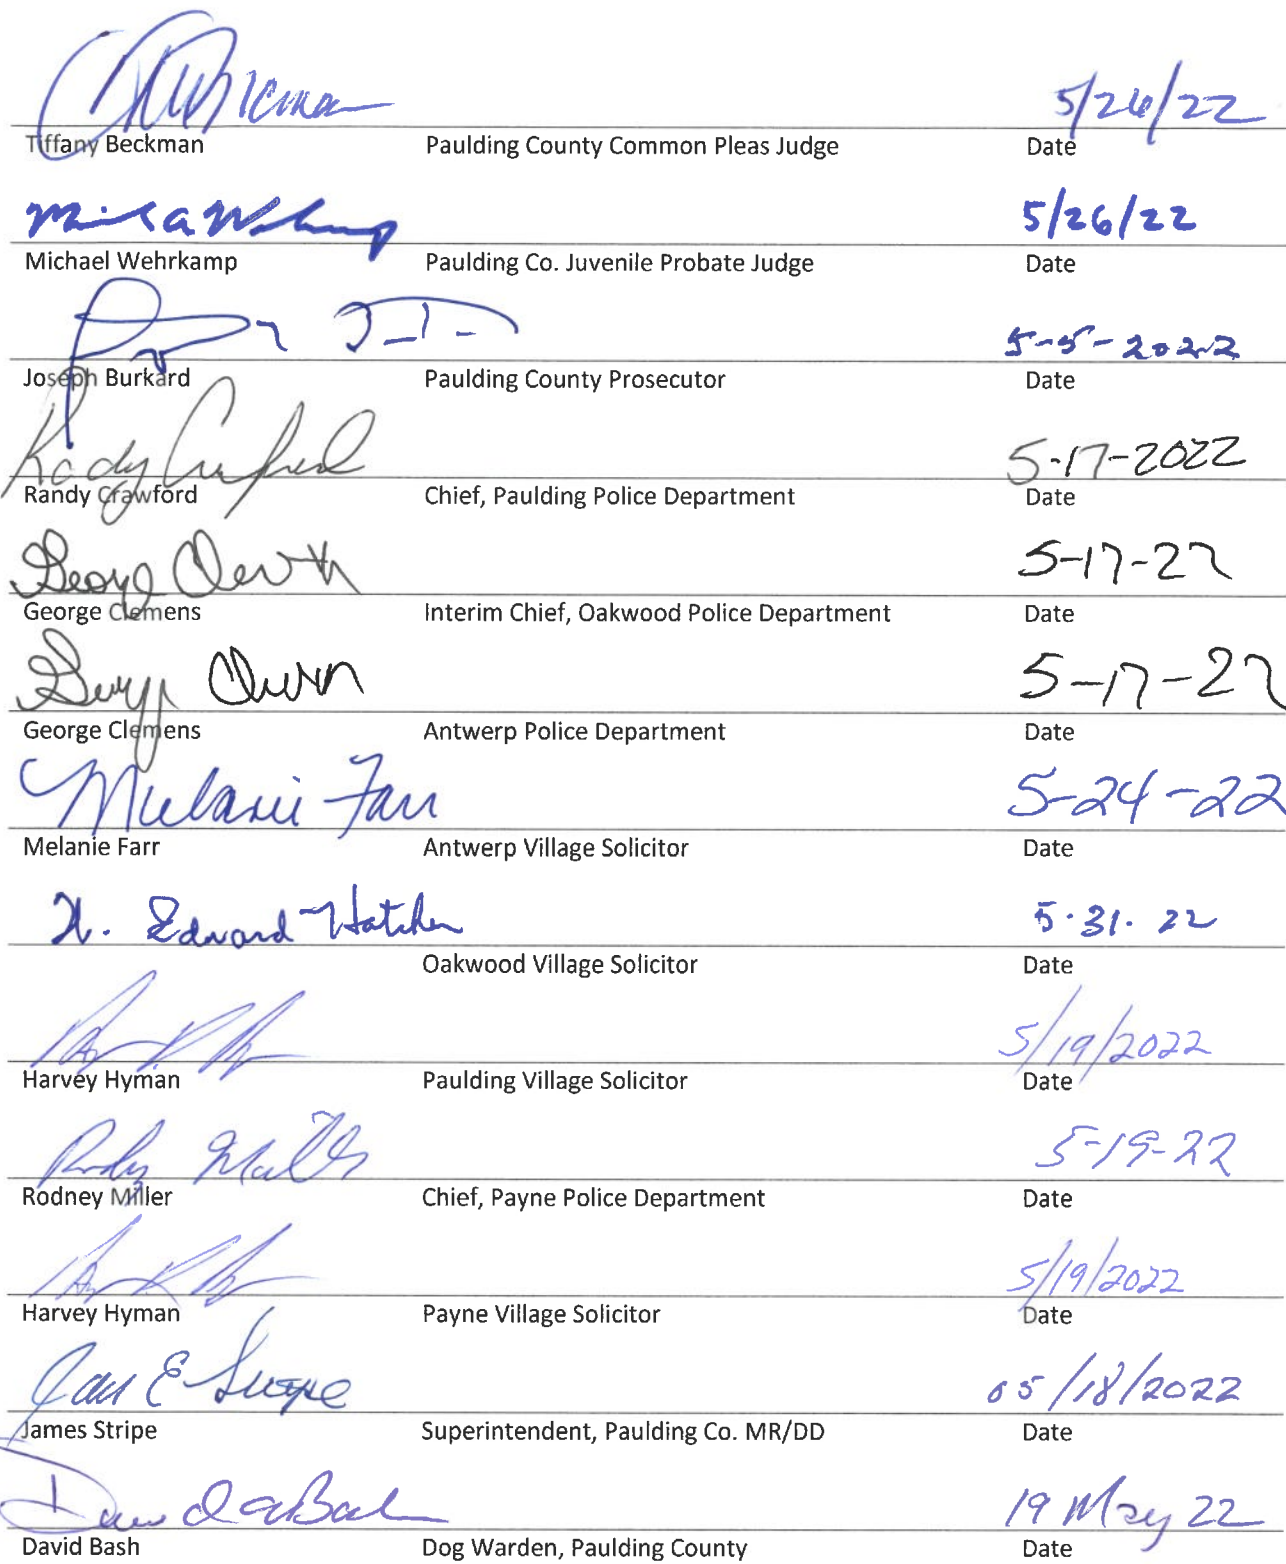 5/26/22
Tiffany Beckman Paulding County Common Pleas Judge Date
5/26/22
Michael Wehrkamp Paulding Co. Juvenile Probate Judge Date
5-5-2022
Joseph Burkard Paulding County Prosecutor Date
Randy Crawford 5-17-2022
Randy Crawford Chief, Paulding Police Department Date
George 5-17-22
George Clemens Interim Chief, Oakwood Police Department Date
5-17-22
George Clemens Antwerp Police Department Date
Melanie Farr 5-24-22
Melanie Farr Antwerp Village Solicitor Date
H. Edward Hatcher 5.31.22
Oakwood Village Solicitor Date
5/19/2022
Harvey Hyman Paulding Village Solicitor Date
5-19-22
Rodney Miller Chief, Payne Police Department Date
5/19/2022
Harvey Hyman Payne Village Solicitor Date
James E Stripe 05/18/2022
James Stripe Superintendent, Paulding Co. MR/DD Date
David a Bash 19 May 22
David Bash Dog Warden, Paulding County Date